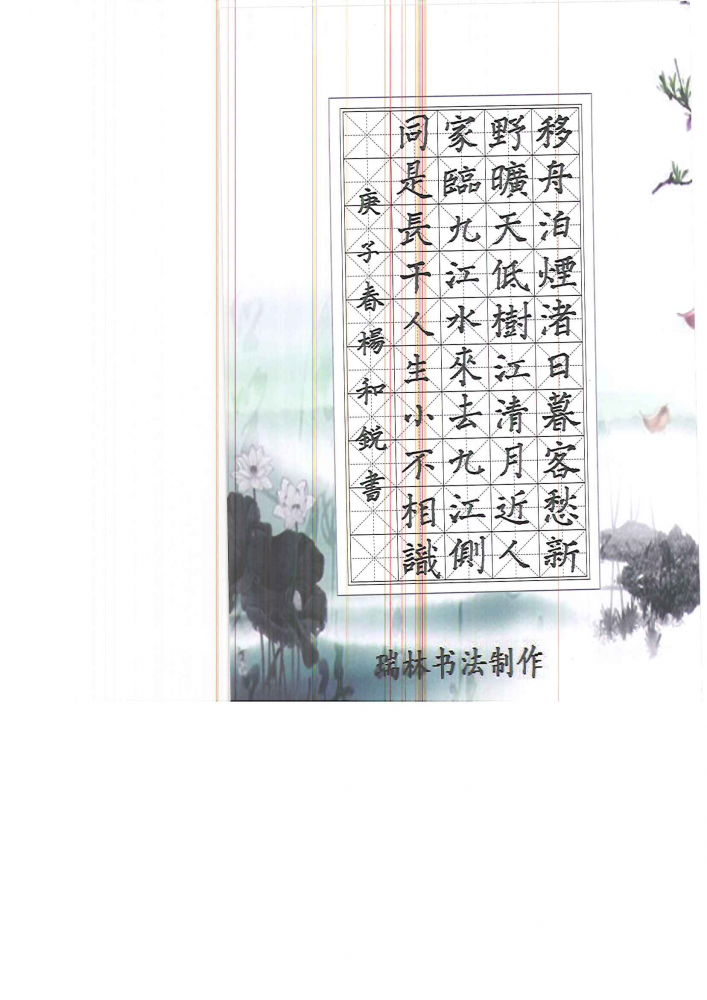 移舟泊煙渚日暮客愁新
野曠天低樹江清月近人
家臨九江水來去九江側
同是長干人生小不相識
庚子春楊和銳書
瑞林书法制作